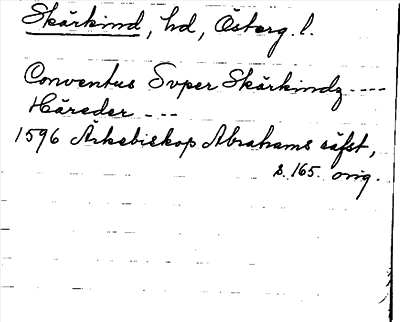 Skärkind, hd, Österg. l.
Conventus Svper Skärkindz ----
Häreder ---
1596 Ärkebiskop Abrahams räfst,
s. 165. orig.